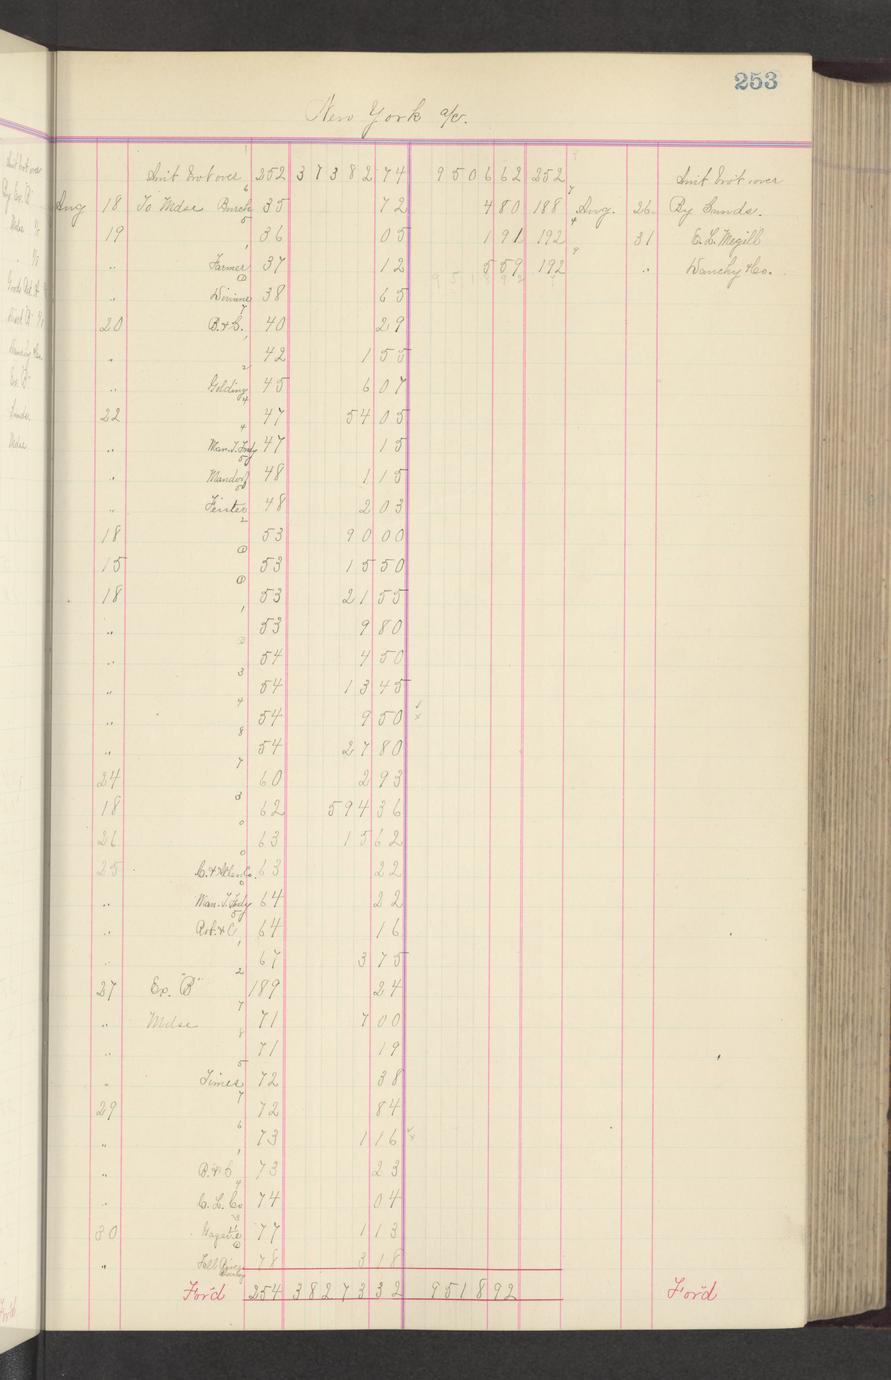 253
New York a/c.
Amt brot over 252 37382 74 9506 62 252 Amt brot over
Aug 18 To Mdse Burch 35 72 4 80 188 Aug. 26 By Sunds.
19 36 05 1 91 192 31 E. L. Megill
" Farmer 37 12 5 59 192 " Wanchy & Co.
" 38 65
20 B. & S. 40 29
" 42 1 55
" Golding 45 6 07
22 47 54 05
" Man. T. Fndy 47 15
" 48 1 15
" 48 2 03
18 53 90 00
15 53 15 50
18 53 21 55
" 53 9 80
" 54 4 50
" 54 13 45
" 54 9 50
" 54 27 80
24 60 2 93
18 62 594 36
26 63 15 62
25 63 22
" Man. T. Fndy 64 22
" 64 16
" 67 3 75
27 Ex. "B" 189 24
" Mdse 71 7 00
" 71 19
" Times 72 38
29 72 84
" 73 1 16
" 73 23
" C. L. Co 74 04
30 77 1 13
" Fall River 78 3 18
For'd 254 38273 32 9518 92 For'd